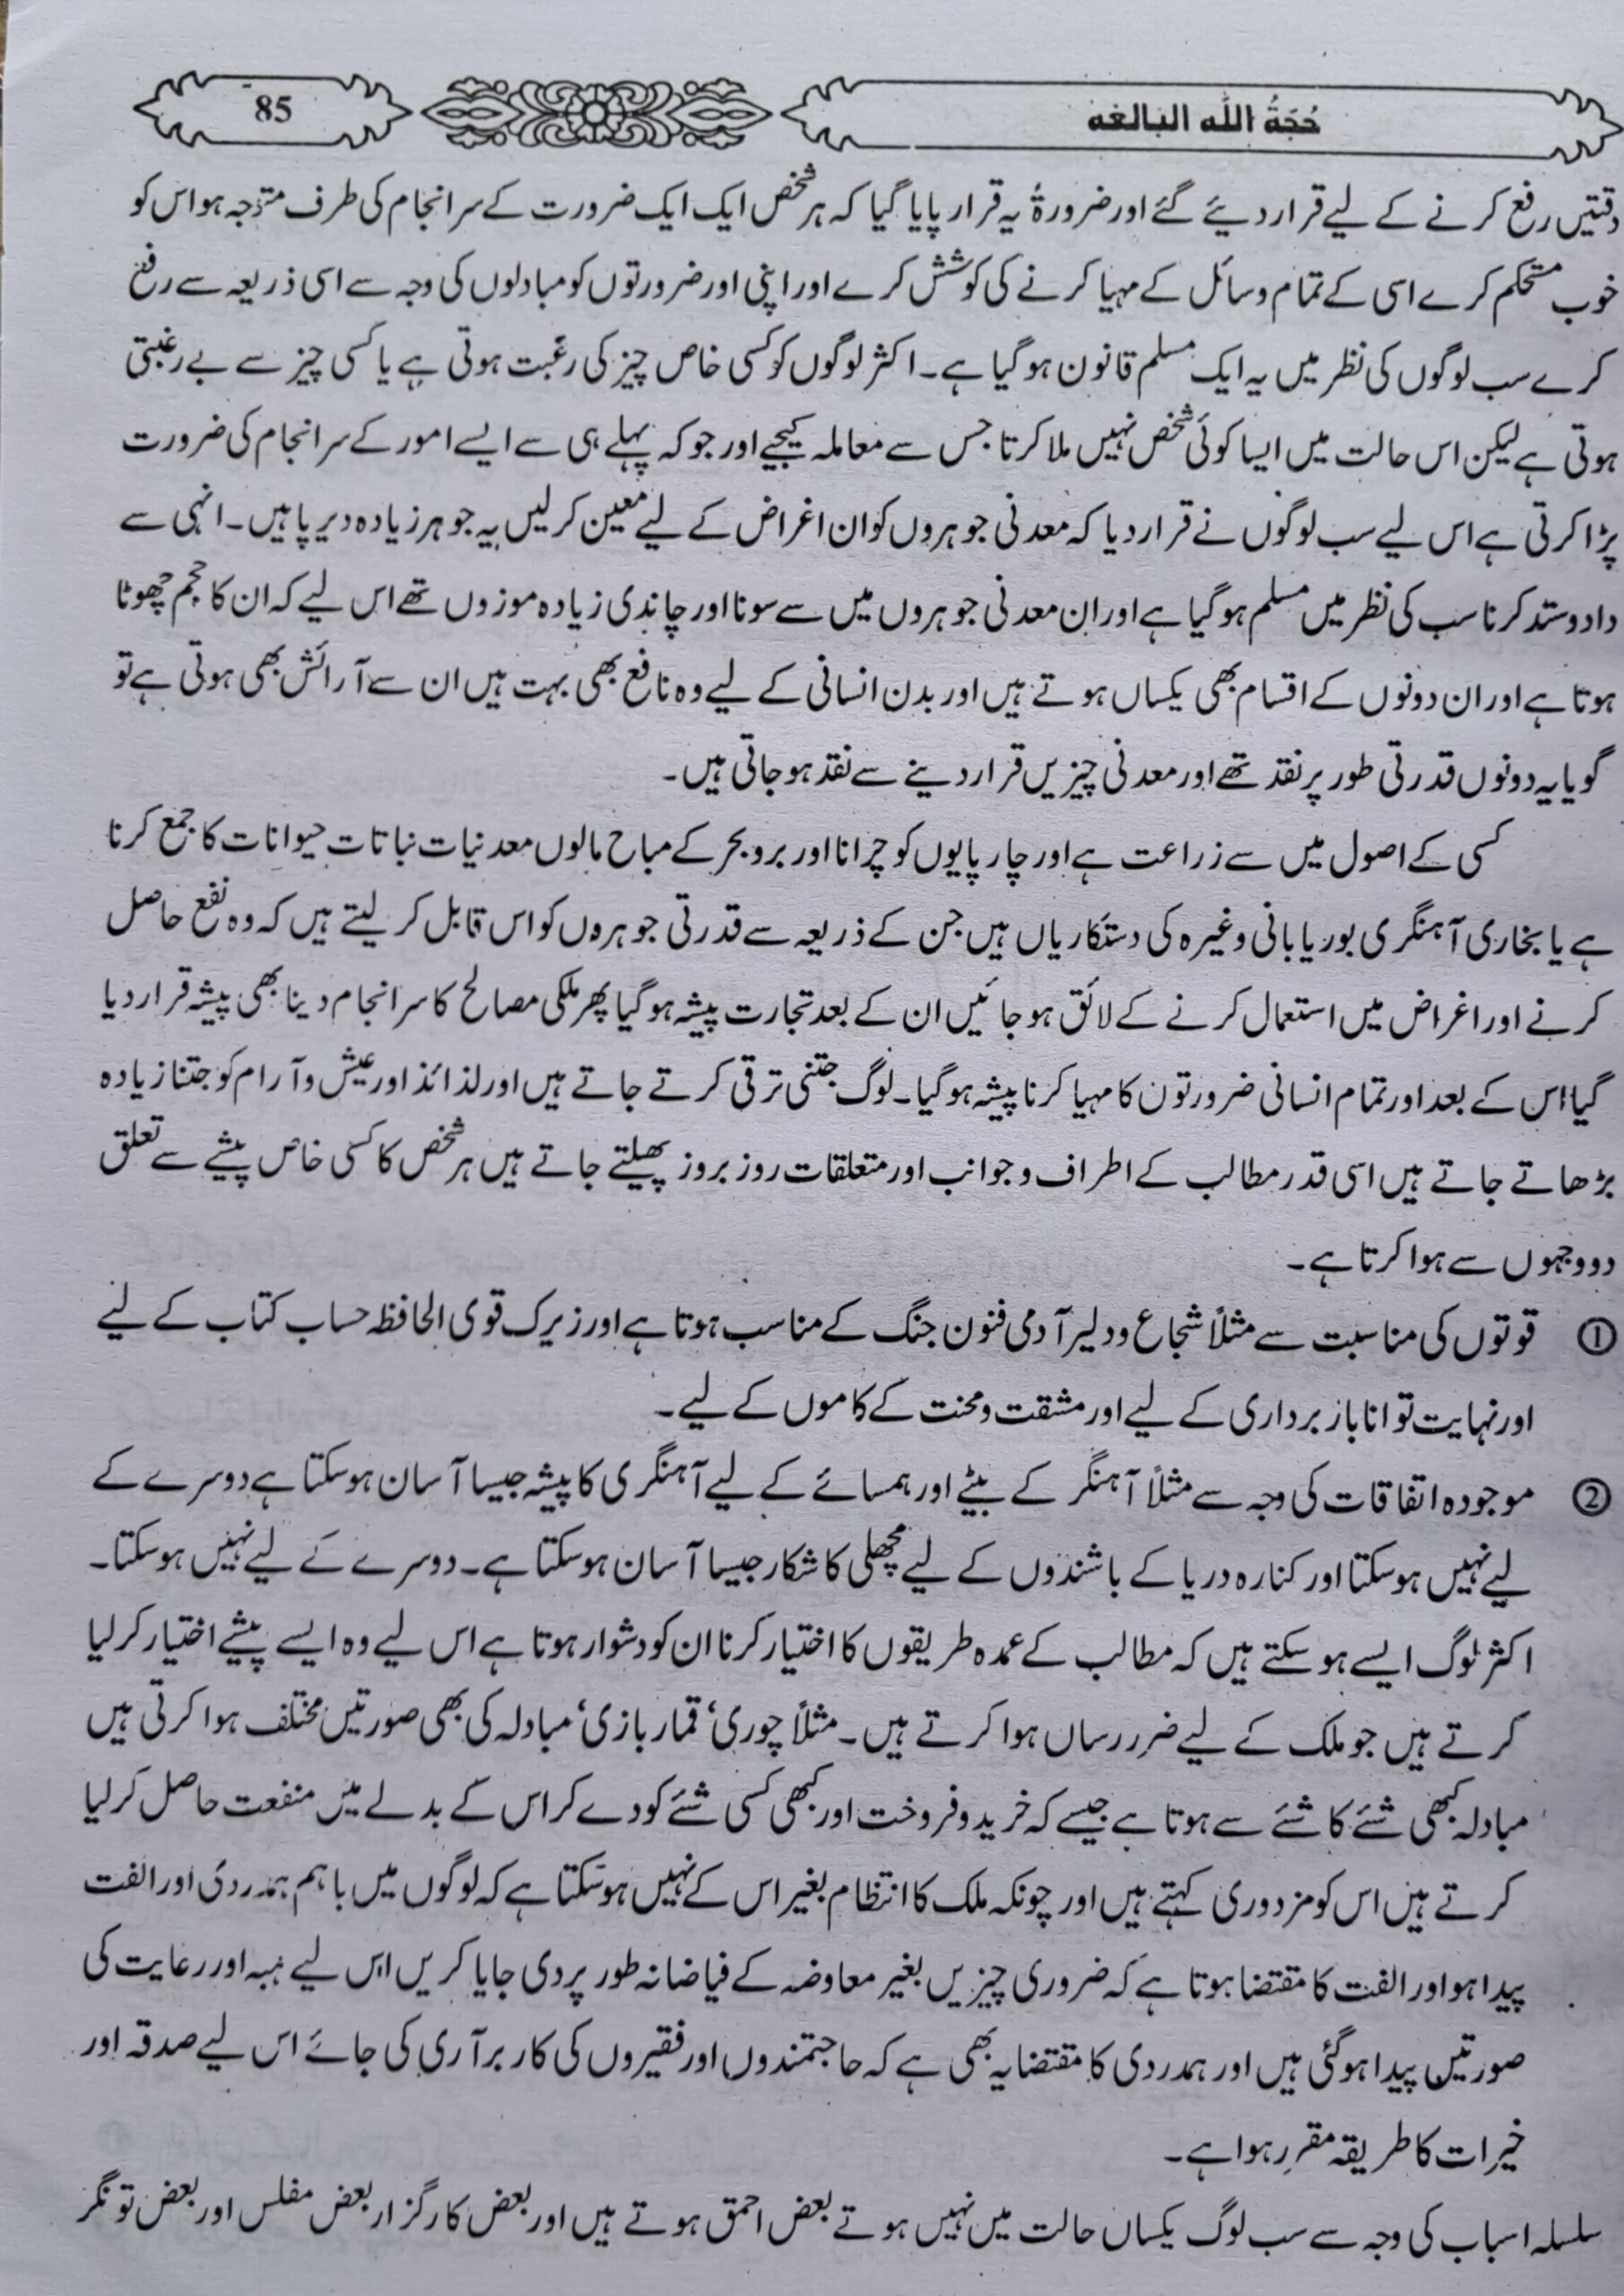 حُجَةُ اللّٰه البالغه
85
دقتیں رفع کرنے کے لیے قرار دیئے گئے اور ضرورۃً یہ قرار پایا گیا کہ ہر شخص ایک ایک ضرورت کے سرانجام کی طرف متوجہ ہو اس کو
خوب مستحکم کرے اسی کے تمام وسائل کے مہیا کرنے کی کوشش کرے اور اپنی اور ضرورتوں کو مبادلوں کی وجہ سے اسی ذریعہ سے رفع
کرے سب لوگوں کی نظر میں یہ ایک مسلم قانون ہو گیا ہے۔ اکثر لوگوں کو کسی خاص چیز کی رغبت ہوتی ہے یا کسی چیز سے بے رغبتی
ہوتی ہے لیکن اس حالت میں ایسا کوئی شخص نہیں ملا کرتا جس سے معاملہ کیجیے اور جو کہ پہلے ہی سے ایسے امور کے سرانجام کی ضرورت
پڑا کرتی ہے اس لیے سب لوگوں نے قرار دیا کہ معدنی جوہروں کو ان اغراض کے لیے معین کر لیں یہ جوہر زیادہ دیر پا ہیں۔ انہی سے
داد و ستد کرنا سب کی نظر میں مسلم ہو گیا ہے اور ان معدنی جوہروں میں سے سونا اور چاندی زیادہ موزوں تھے اس لیے کہ ان کا حجم چھوٹا
ہوتا ہے اور ان دونوں کے اقسام بھی یکساں ہوتے ہیں اور بدن انسانی کے لیے وہ نافع بھی بہت ہیں ان سے آرائش بھی ہوتی ہے تو
گویا یہ دونوں قدرتی طور پر نقد تھے اور معدنی چیزیں قرار دینے سے نقد ہو جاتی ہیں۔
کسی کے اصول میں سے زراعت ہے اور چار پایوں کو چرانا اور بر و بحر کے مباح مالوں معدنیات نباتات حیوانات کا جمع کرنا
ہے یا بخاری آہنگری بوریا بانی وغیرہ کی دستکاریاں ہیں جن کے ذریعہ سے قدرتی جوہروں کو اس قابل کر لیتے ہیں کہ وہ نفع حاصل
کرنے اور اغراض میں استعمال کرنے کے لائق ہو جائیں ان کے بعد تجارت پیشہ ہو گیا پھر ملکی مصالح کا سرانجام دینا بھی پیشہ قرار دیا
گیا اس کے بعد اور تمام انسانی ضرورتون کا مہیا کرنا پیشہ ہو گیا۔ لوگ جتنی ترقی کرتے جاتے ہیں اور لذائذ اور عیش و آرام کو جتنا زیادہ
بڑھاتے جاتے ہیں اسی قدر مطالب کے اطراف و جوانب اور متعلقات روز بروز پھیلتے جاتے ہیں ہر شخص کا کسی خاص پیشے سے تعلق
دو وجہوں سے ہوا کرتا ہے۔
① قوتوں کی مناسبت سے مثلاً شجاع و دلیر آدمی فنون جنگ کے مناسب ہوتا ہے اور زیرک قوی الحافظہ حساب کتاب کے لیے
اور نہایت توانا باز برداری کے لیے اور مشقت و محنت کے کاموں کے لیے۔
② موجودہ اتفاقات کی وجہ سے مثلاً آہنگر کے بیٹے اور ہمسائے کے لیے آہنگری کا پیشہ جیسا آسان ہو سکتا ہے دوسرے کے
لیے نہیں ہو سکتا اور کنارہ دریا کے باشندوں کے لیے مچھلی کا شکار جیسا آسان ہو سکتا ہے۔ دوسرے کے لیے نہیں ہو سکتا۔
اکثر لوگ ایسے ہو سکتے ہیں کہ مطالب کے عمدہ طریقوں کا اختیار کرنا ان کو دشوار ہوتا ہے اس لیے وہ ایسے پیشے اختیار کر لیا
کرتے ہیں جو ملک کے لیے ضرر رساں ہوا کرتے ہیں۔ مثلاً چوری‘ قمار بازی‘ مبادلہ کی بھی صورتیں مختلف ہوا کرتی ہیں
مبادلہ کبھی شئے کا شئے سے ہوتا ہے جیسے کہ خرید و فروخت اور کبھی کسی شئے کو دے کر اس کے بدلے میں منفعت حاصل کر لیا
کرتے ہیں اس کو مزدوری کہتے ہیں اور چونکہ ملک کا انتظام بغیر اس کے نہیں ہو سکتا ہے کہ لوگوں میں باہم ہمدردی اور الفت
پیدا ہو اور الفت کا مقتضا ہوتا ہے کہ ضروری چیزیں بغیر معاوضہ کے فیاضانہ طور پر دی جایا کریں اس لیے ہبہ اور رعایت کی
صورتیں پیدا ہو گئی ہیں اور ہمدردی کا مقتضا یہ بھی ہے کہ حاجتمندوں اور فقیروں کی کار برآری کی جائے اس لیے صدقہ اور
خیرات کا طریقہ مقرر ہوا ہے۔
سلسلہ اسباب کی وجہ سے سب لوگ یکساں حالت میں نہیں ہوتے بعض احمق ہوتے ہیں اور بعض کارگزار بعض مفلس اور بعض تونگر